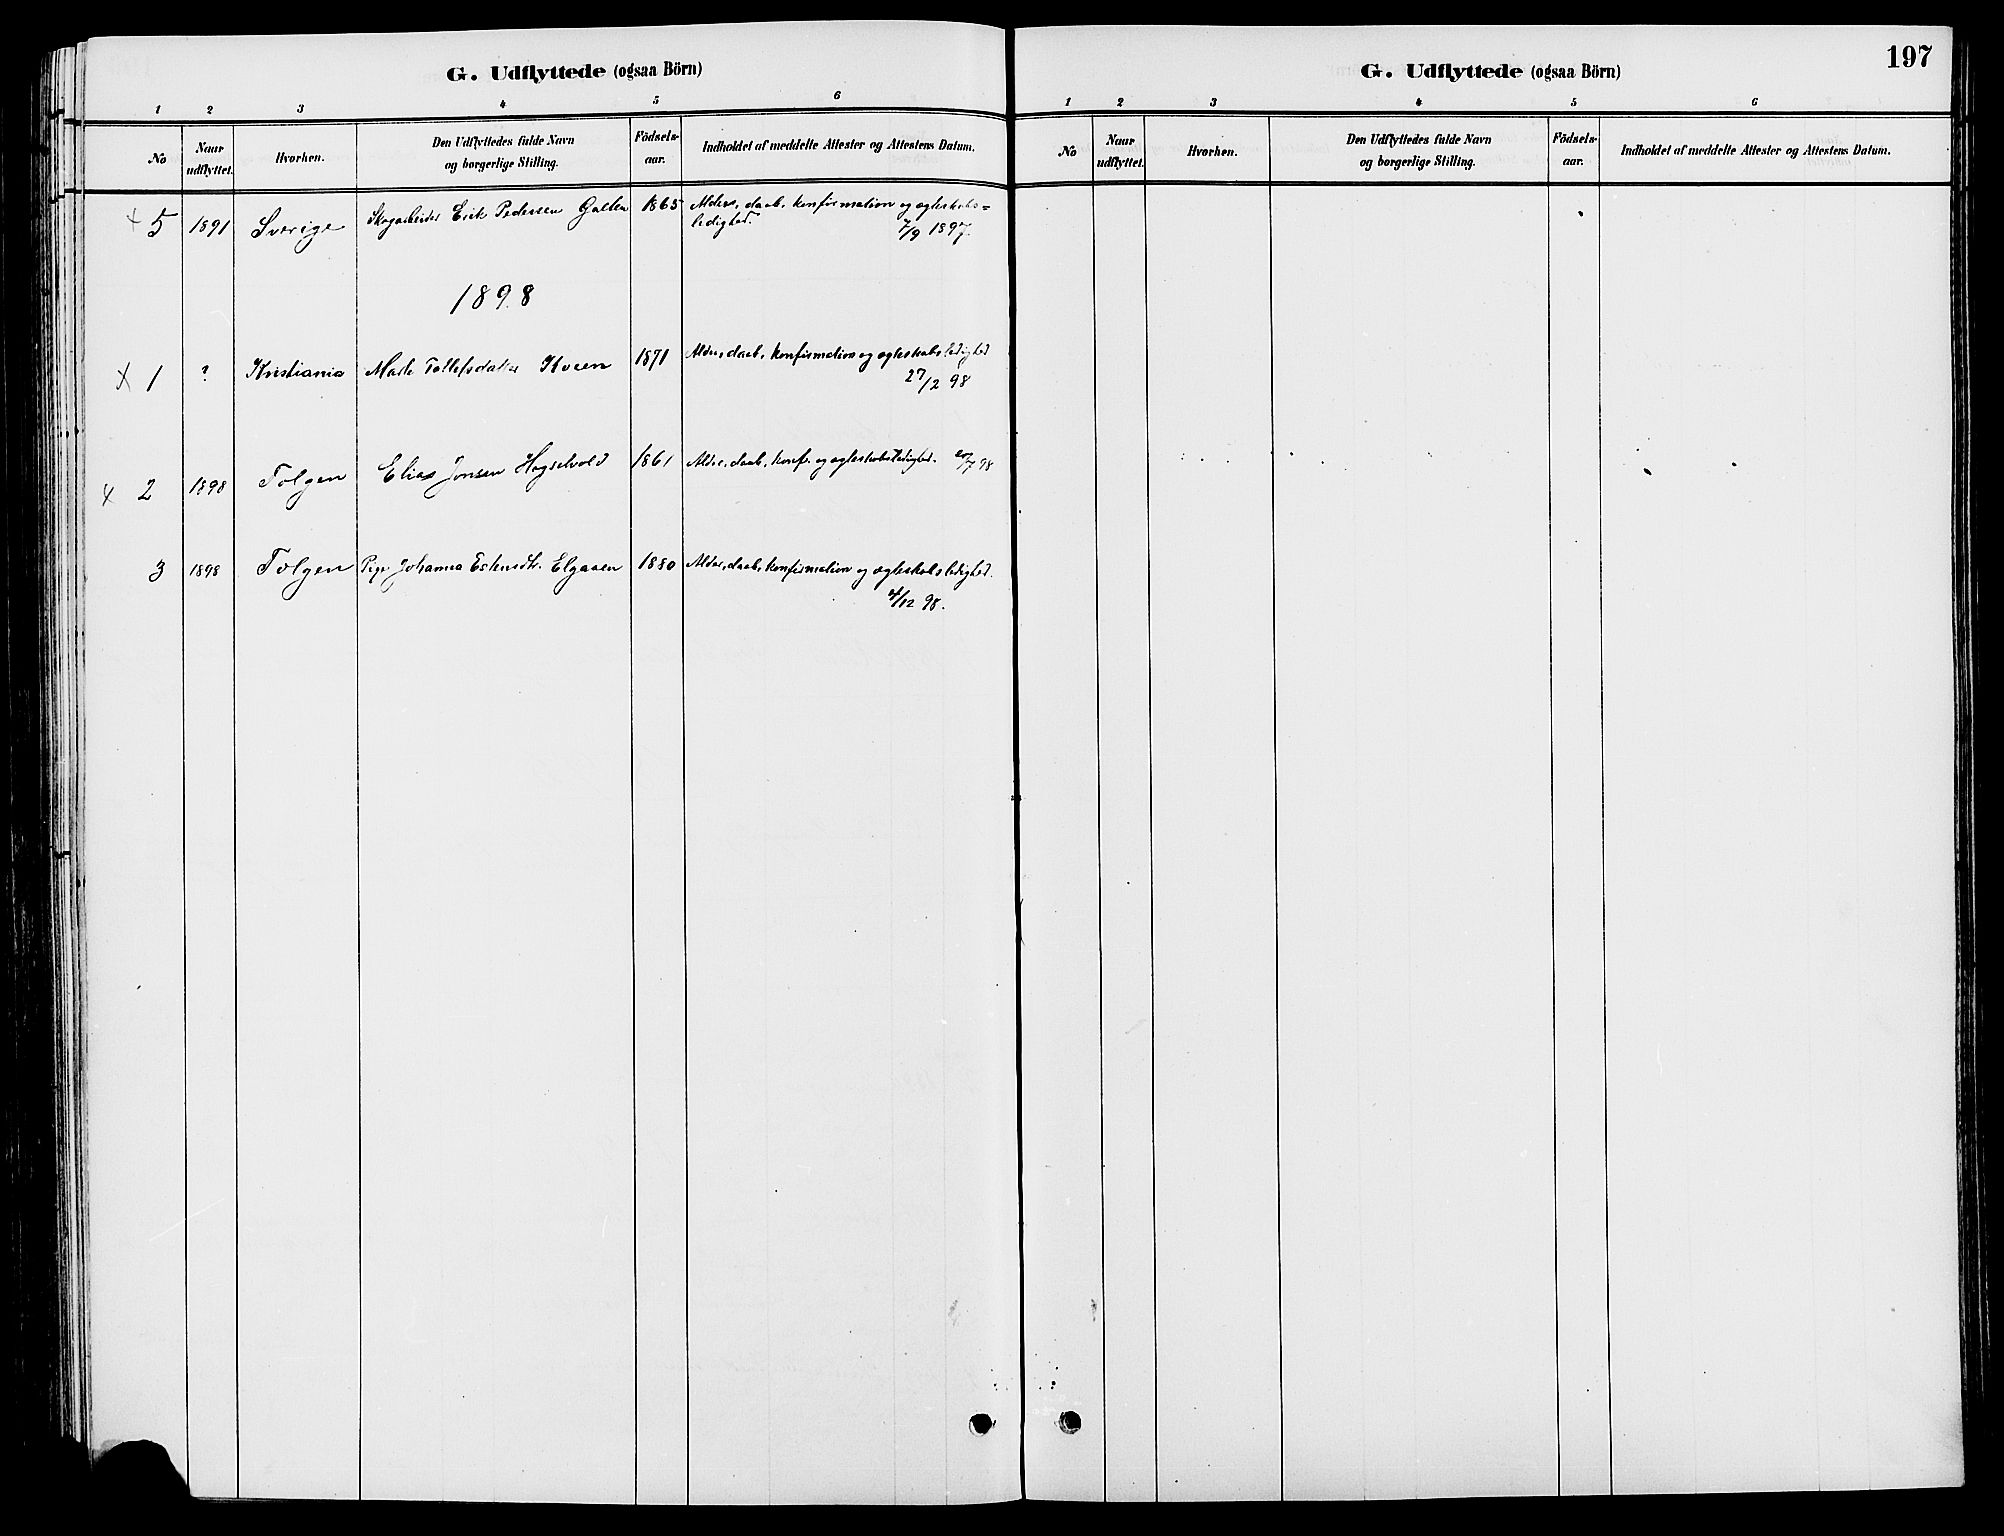 G. Udflyttede (ogsaa Börn)
1 2 3 4 5 6
No Naar udflyttet. Hvorhen. Den Udflyttedes fulde Navn og borgerlige Stilling. Födsels-aar. Indholdet af meddelte Attester og Attestens Datum.
x 5 1891 Sverige Skogarbeider Erik Pedersen Galten 1865 Alders, daab, konfirmation og ægteskabs=
ledighed. 7/9 1897.
1898
x 1 ? Kristiania Marte Tollefsdatter Kveen 1871 Alder, daab, konfirmation og ægteskabsledighed
27/2 98
x 2 1898 Tolgen Elias Jonsen Hogselvold 1861 Alder, daab, konf. og ægteskabsledighed. /7 98
3 1898 Tolgen Pige Johanna Eskrisdtr. Elgaaen 1880 Alder, daab, konfirmation og ægteskabsledighed.
4/12 98.
197
G. Udflyttede (ogsaa Börn)
1 2 3 4 5 6
No Naar udflyttet. Hvorhen. Den Udflyttedes fulde Navn og borgerlige Stilling. Födsels-aar. Indholdet af meddelte Attester og Attestens Datum.